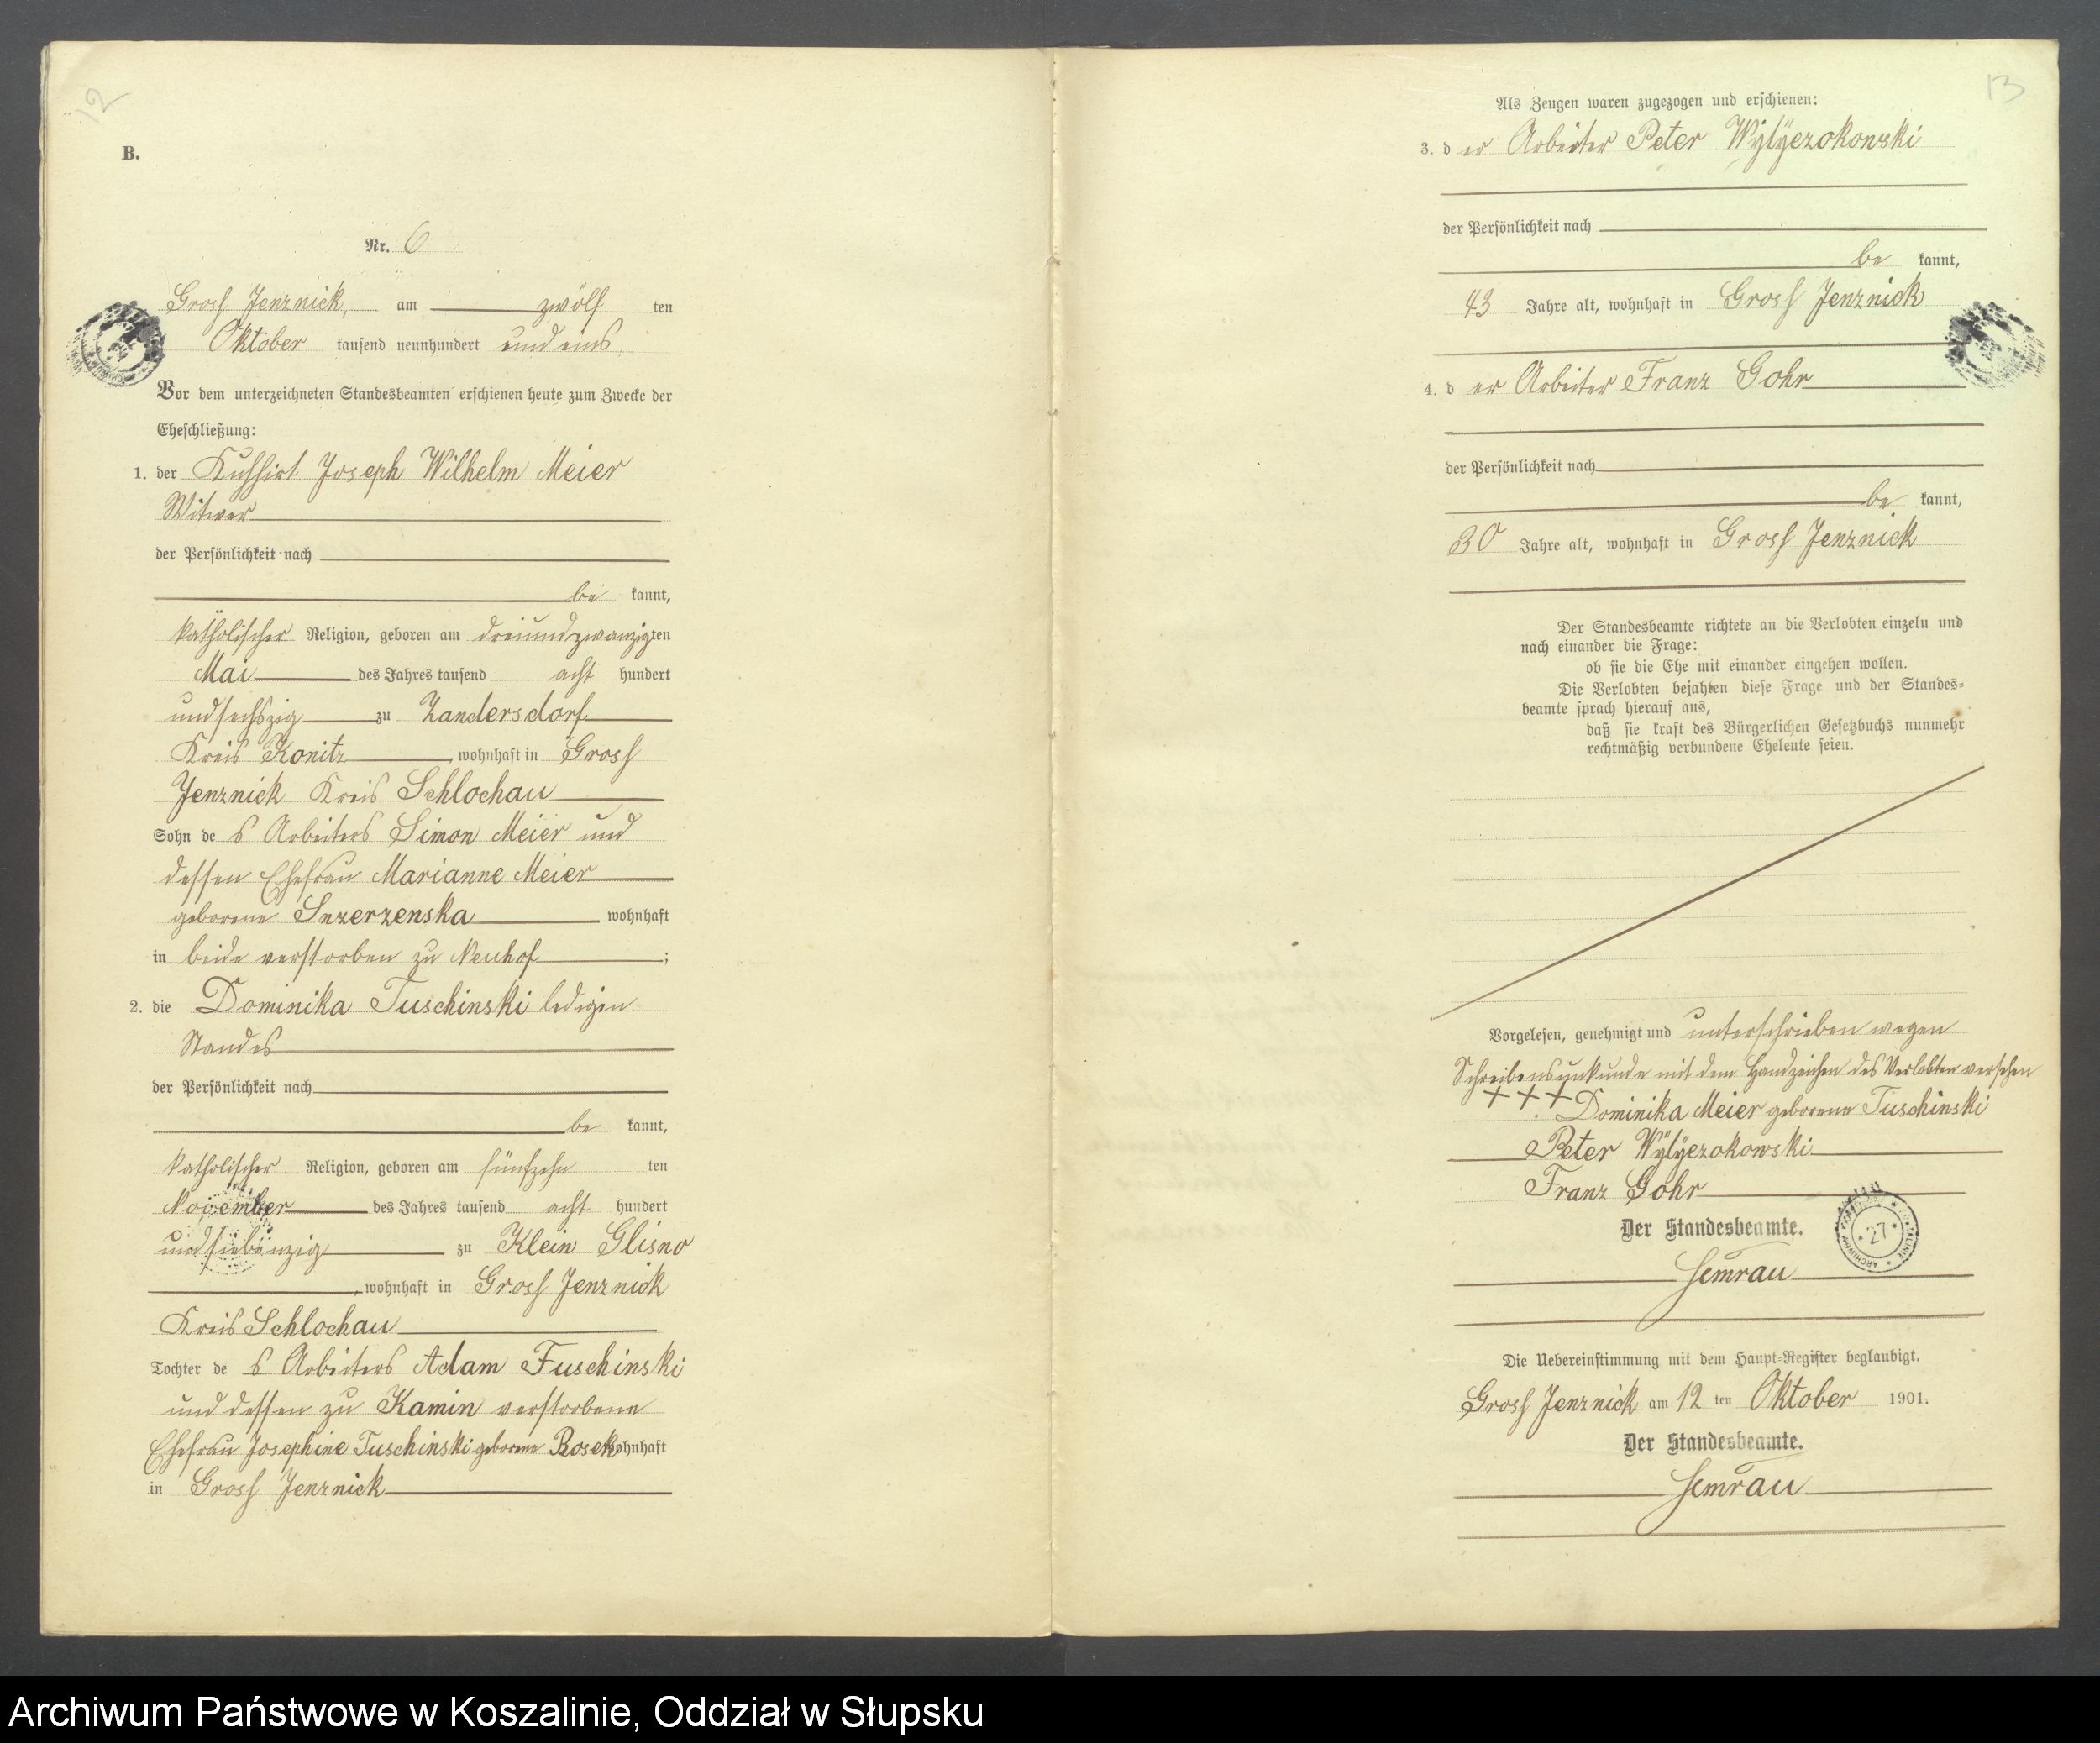 12
B.
Nr. 6
Gross Jenznick, am zwölf ten
Oktober tausend neunhundert und eins
Vor dem unterzeichneten Standesbeamten erschienen heute zum Zwecke der
Eheschließung:
1. der Kuhhirt Joseph Wilhelm Meier
Witwer
der Persönlichkeit nach
be kannt,
katholischer Religion, geboren am dreiundzwanzigten
Mai des Jahres tausend acht hundert
undsechszig zu Zandersdorf
Kreis Konitz, wohnhaft in Gross
Jenznick Kreis Schlochau
Sohn de s Arbeiters Simon Meier und
dessen Ehefrau Marianne Meier
geborene Snzerzenska wohnhaft
in beide verstorben zu Neuhof ;
2. die Dominika Tuschinski ledigen
Standes
der Persönlichkeit nach
be kannt,
katholischer Religion, geboren am fünfzehn ten
November des Jahres tausend acht hundert
und siebenzig zu Klein Glisno
, wohnhaft in Gross Jenznick
Kreis Schlochau
Tochter de s Arbeiters Adam Tuschinski
und dessen zu Kamin verstorbene
Ehefrau Josephine Tuschinski geborene Rosek wohnhaft
in Gross Jenznick
13
Als Zeugen waren zugezogen und erschienen:
3. d er Arbeiter Peter Wÿlÿezokowski
der Persönlichkeit nach
be kannt,
43 Jahre alt, wohnhaft in Gross Jenznick
4. d er Arbeiter Franz Gohr
der Persönlichkeit nach
be kannt,
30 Jahre alt, wohnhaft in Gross Jenznick
Der Standesbeamte richtete an die Verlobten einzeln und
nach einander die Frage:
ob sie die Ehe mit einander eingehen wollen.
Die Verlobten bejahten diese Frage und der Standes-
beamte sprach hierauf aus,
daß sie kraft des Bürgerlichen Gesetzbuchs nunmehr
rechtmäßig verbundene Eheleute seien.
Vorgelesen, genehmigt und unterschrieben wegen
Schreibensunkunde mit dem Handzeichen des Verlobten versehen
+++ Dominika Meier geborene Tuschinski
Peter Wÿlÿezokowski
Franz Gohr
Der Standesbeamte.
27
Semrau
Die Uebereinstimmung mit dem Haupt-Register beglaubigt.
Gross Jenznick am 12 ten Oktober 1901.
Der Standesbeamte.
Semrau
Archiwum Państwowe w Koszalinie, Oddział w Słupsku